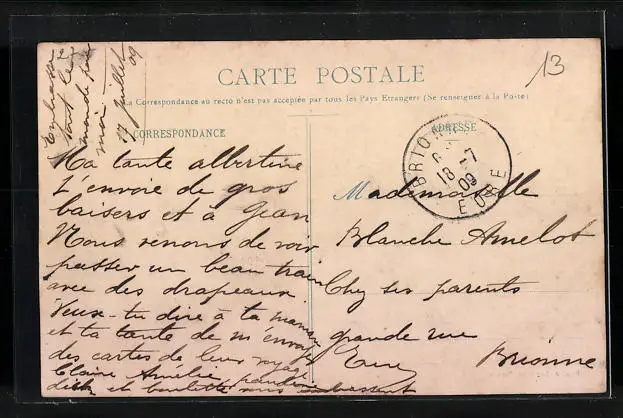 13
Embrasse
tout le
monde pour
moi
17 juillet 09
CARTE POSTALE
La Correspondance au recto n'est pas acceptée par tous les Pays Etrangers (Se renseigner à la Poste)
CORRESPONDANCE
ADRESSE
BRIONNE
18 -7
09
EURE
Ma tante albertine
t'envoie de gros
baisers et à Jean
Nous venons de voir
passer un beau train
avec des drapeaux.
Veux-tu dire à ta maman
et ta tante de m'envoyer
des cartes de leur voyage
Claire Amélie
et vous embrassent
Mademoiselle
Blanche Amelot
Chez ses parents
grande rue
Brionne
Eure